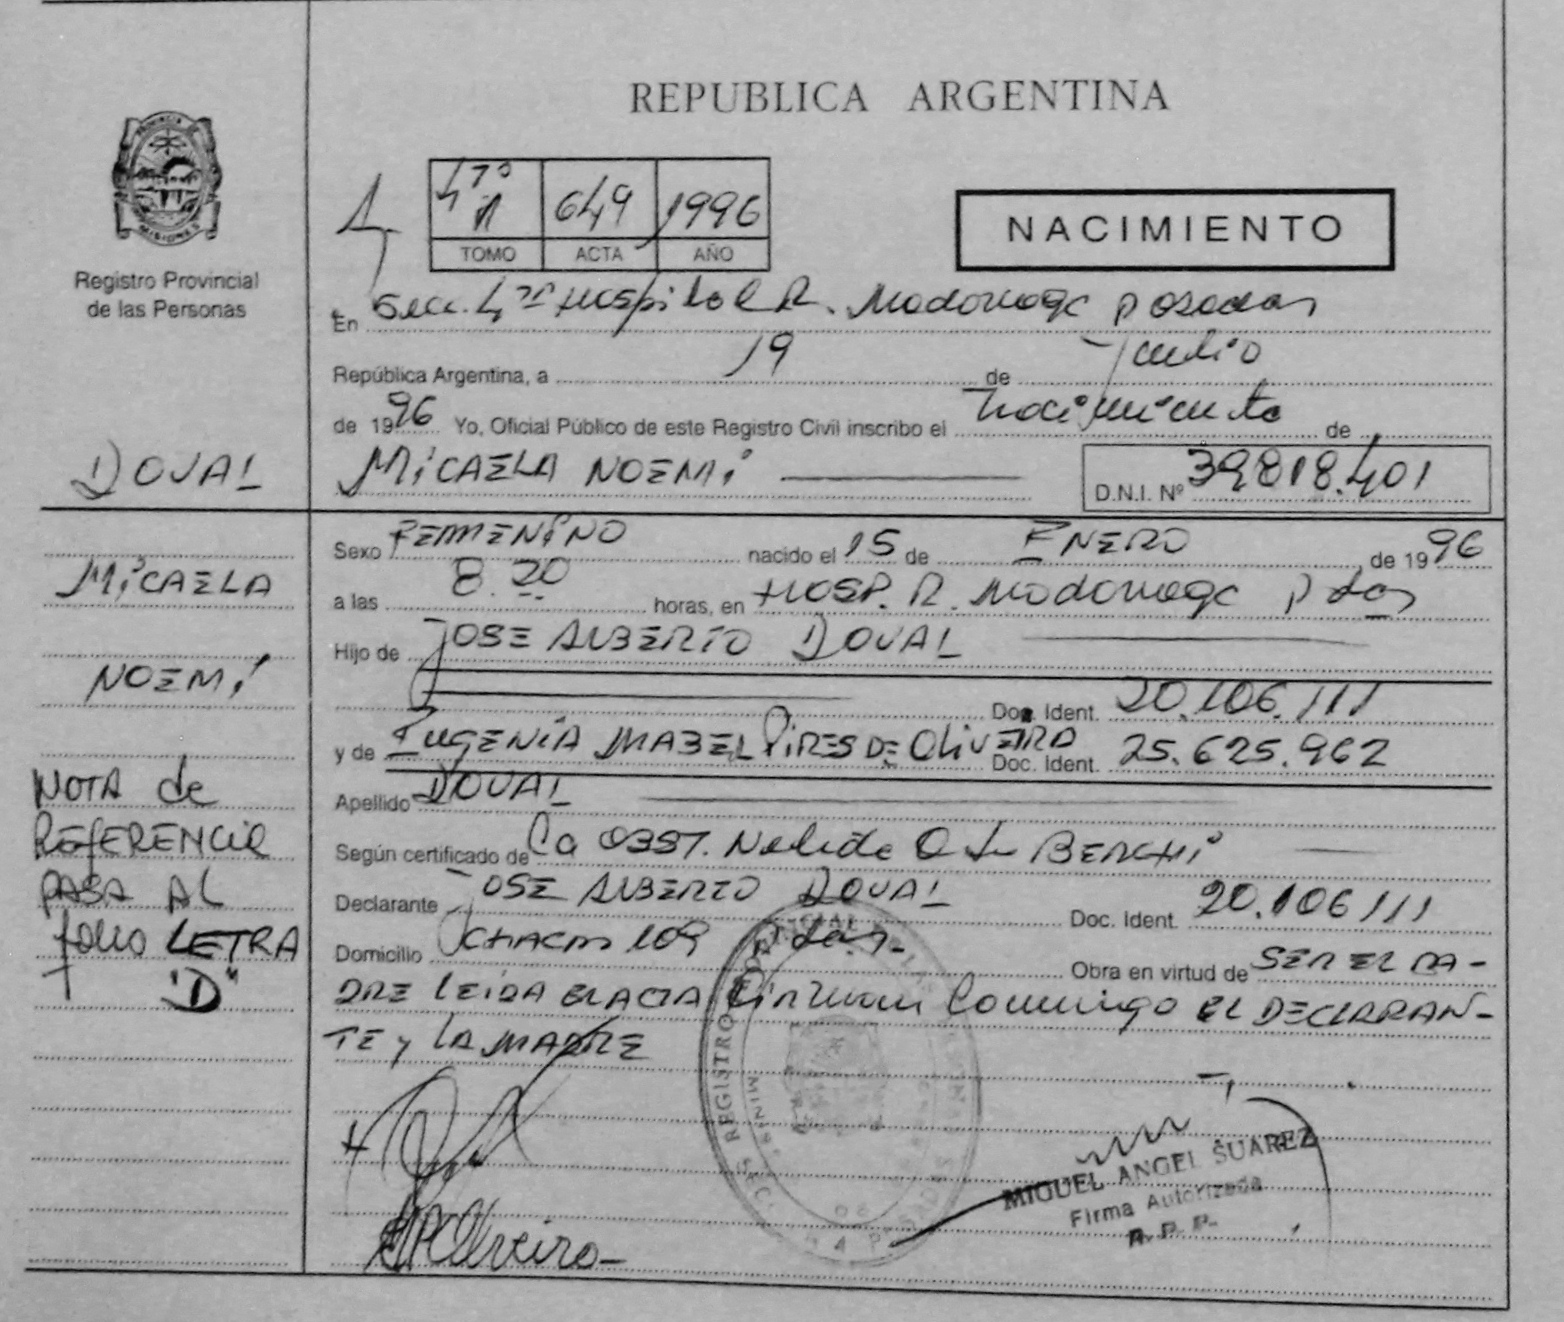 REPUBLICA ARGENTINA
PROVINCIA DE
MISIONES
Registro Provincial
de las Personas
4
TOMO ACTA AÑO
649 1996
NACIMIENTO
En Secc. 4ta Hospital R. Madariaga Posadas
República Argentina, a 19 de Julio
de 1996 Yo, Oficial Público de este Registro Civil inscribo el nacimiento de
MICAELA NOEMÍ D.N.I. Nº 39818.401
DOVAL
MICAELA
NOEMÍ
Sexo FEMENINO nacido el 15 de ENERO de 1996
a las 8.20 horas, en HOSP. R. Madariaga Pdas
Hijo de JOSE ALBERTO DOVAL
Doc. Ident. 20.106.111
y de EUGENIA MABEL PIRES DE OLIVEIRA Doc. Ident. 25.625.962
Apellido DOVAL
Según certificado de Nelida BERCHI
Declarante JOSE ALBERTO DOVAL Doc. Ident. 20.106111
Domicilio 109 Pdas- Obra en virtud de SER EL PA-
DRE LEIDA EL ACTA Firman Conmigo EL DECLARAN-
TE y LA MADRE
NOTA de
REFERENCIA
PASA AL
folio LETRA
"D"
MIGUEL ANGEL SUAREZ
Firma Autorizada
R. P. P.